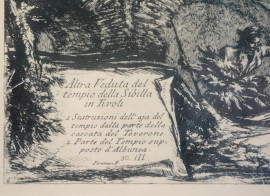 Altra Veduta del
tempio della Sibilla
in Tivoli
1. Sustruzioni dell' aja del
tempio dalla parte della
cascata del Teverone.
2. Parte del Tempio sup-
posto d'Albunea.